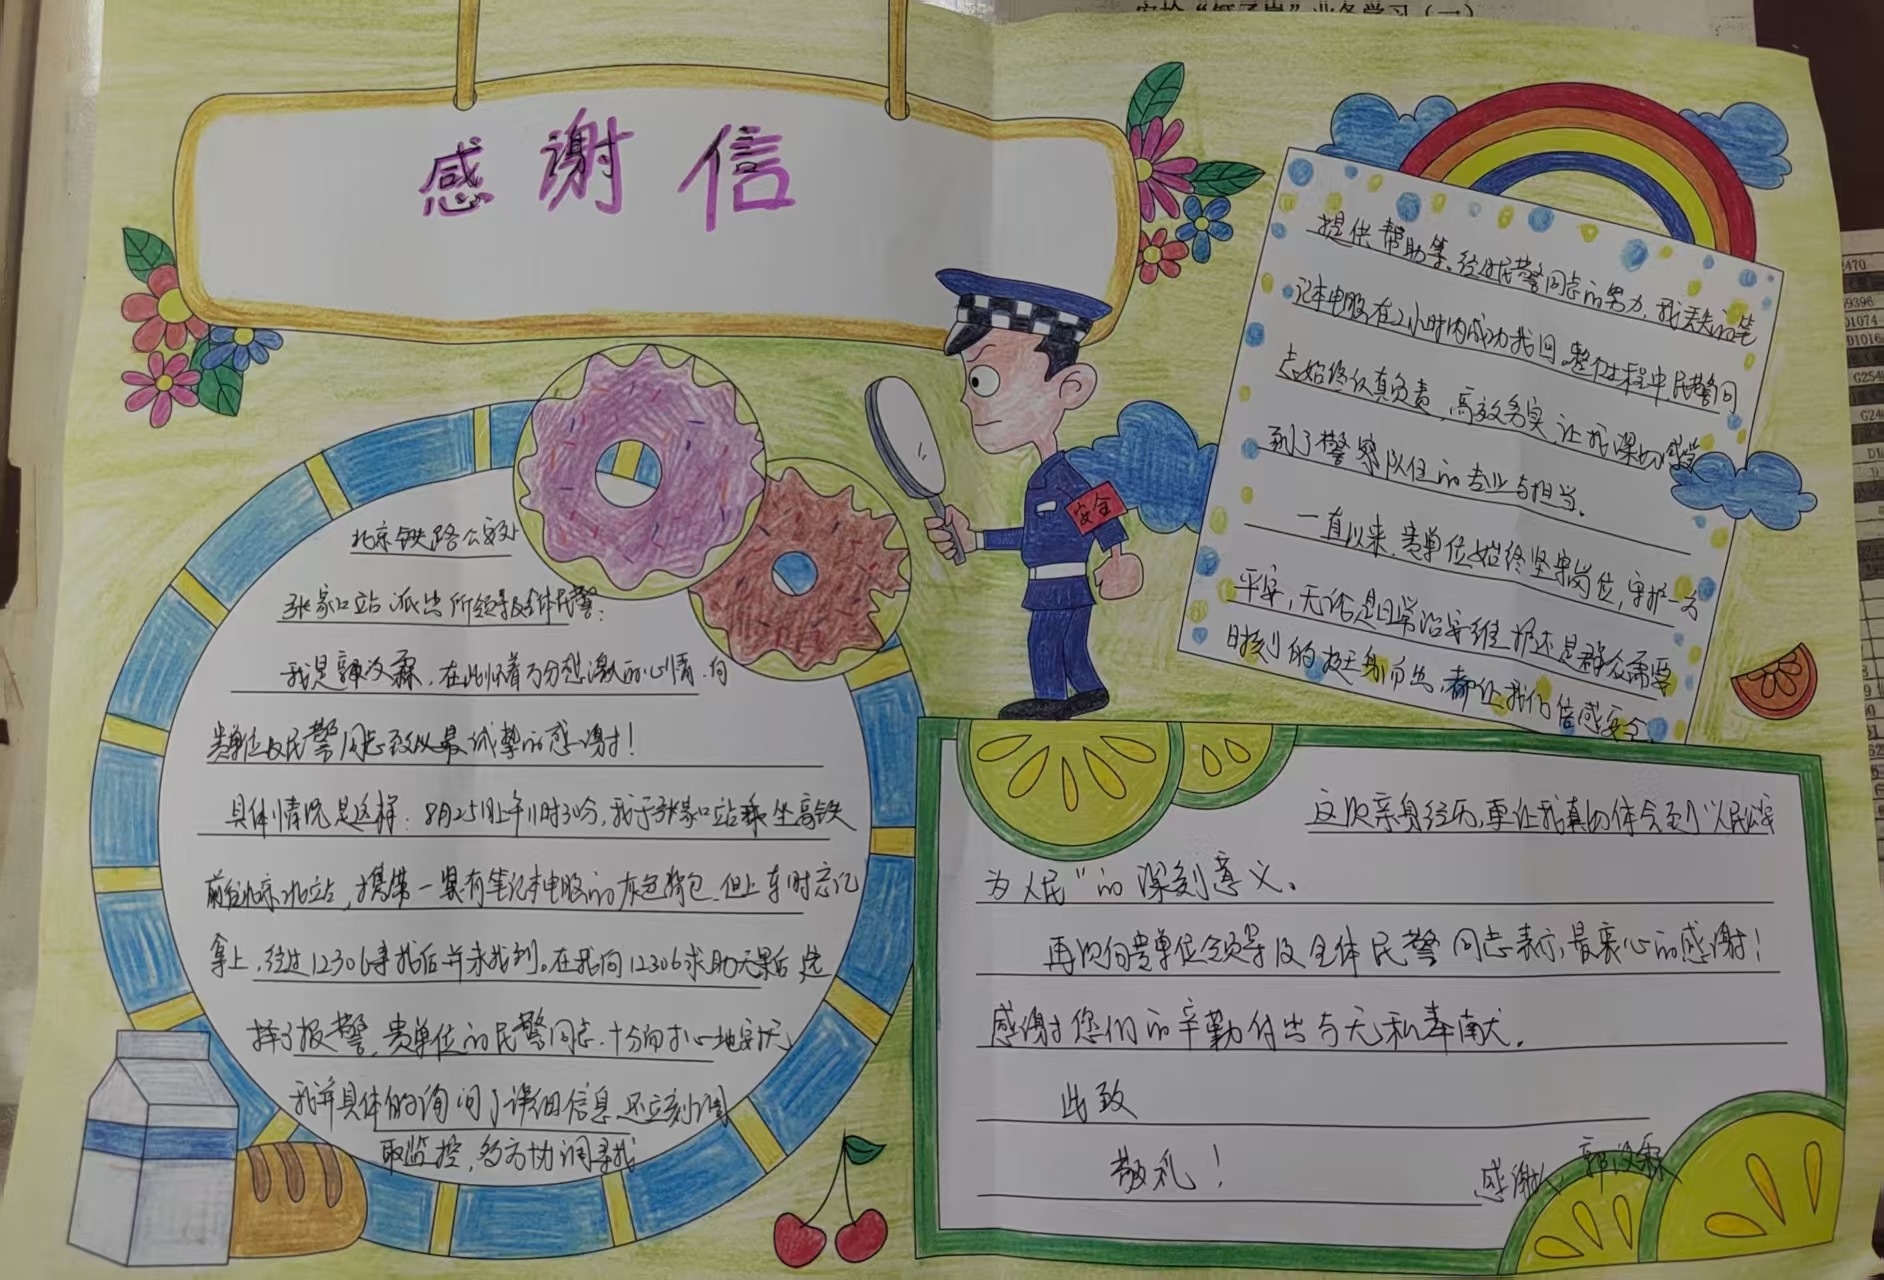 感谢信
北京铁路公安处
张家口站派出所领导及全体民警：
我是郭汶霖，在此怀着万分感激的心情，向
贵单位及民警同志致以最诚挚的感谢！
具体情况是这样：8月25日上午11时30分，我于张家口站乘坐高铁
前往北京北站，携带一装有笔记本电脑的灰色背包，但上车时忘记
拿上，经过12306寻找后并未找到。在我向12306求助无果后，选
择了报警，贵单位的民警同志，十分耐心地安抚
我并具体的询问了详细信息，还立刻调
取监控，多方协调寻找
提供帮助等。经过民警同志的努力，我丢失的笔
记本电脑在2小时内成功找回。整个过程中民警同
志始终认真负责，高效务实，让我深切感受
到了警察队伍的专业与担当。
一直以来，贵单位始终坚守岗位，守护一方
平安，无论是日常治安维护还是群众需要
时刻的挺身而出，都让我们倍感安全。
安全
这次亲身经历，更让我真切体会到"人民公安
为人民"的深刻意义。
再次向贵单位领导及全体民警同志表示最衷心的感谢！
感谢您们的辛勤付出与无私奉献。
此致
敬礼！
感谢人：郭汶霖